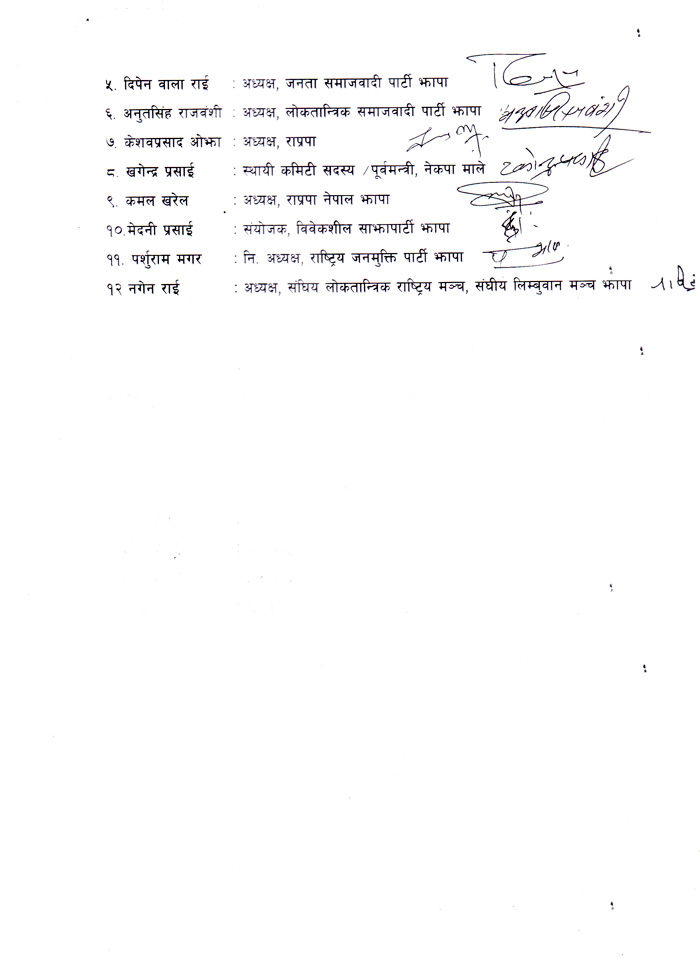 ५. दिपेन वाला राई : अध्यक्ष, जनता समाजवादी पार्टी झापा
६. अनुतसिंह राजवंशी : अध्यक्ष, लोकतान्त्रिक समाजवादी पार्टी झापा
७. केशवप्रसाद ओझा : अध्यक्ष, राप्रपा
८. खगेन्द्र प्रसाई : स्थायी कमिटी सदस्य /पूर्वमन्त्री, नेकपा माले
९. कमल खरेल : अध्यक्ष, राप्रपा नेपाल झापा
१०.मेदनी प्रसाई : संयोजक, विवेकशील साझापार्टी झापा
११. पर्शुराम मगर : नि. अध्यक्ष, राष्ट्रिय जनमुक्ति पार्टी झापा
१२ नगेन राई : अध्यक्ष, संघिय लोकतान्त्रिक राष्ट्रिय मञ्च, संघीय लिम्बुवान मञ्च झापा